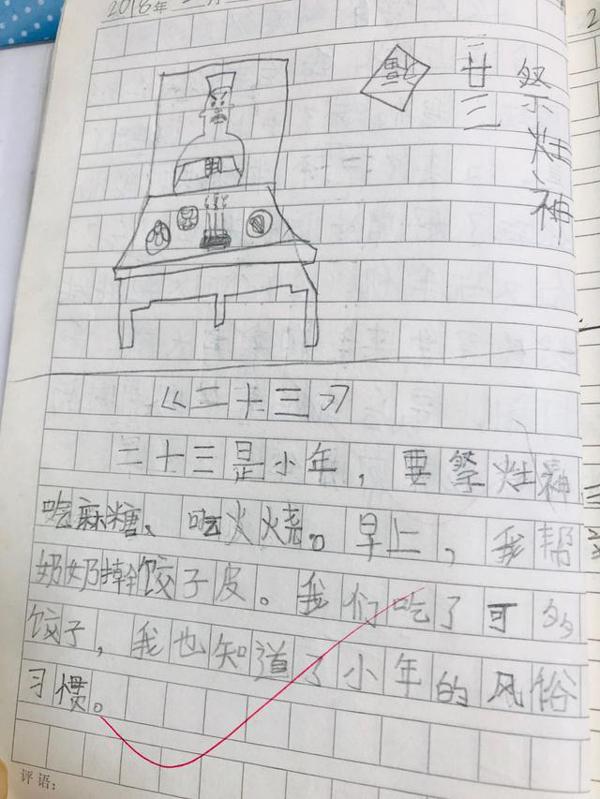 2018年
祭灶神
廿三
福
《二十三》
二十三是小年，要祭灶神
吃麻糖、吃火烧。早上，我帮
奶奶擀饺子皮。我们吃了可多
饺子，我也知道了小年的风俗
习惯。
评语：